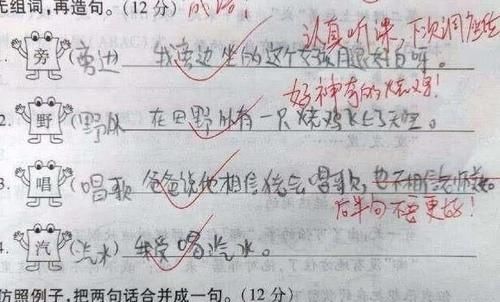 先组词，再造句。(12分)
认真听课，下次调座位
旁(旁边)我旁边坐的这个女孩月退好白呀。
好神奇的烧鸡!
2.野(野外)在田野外有一只烧鸡飞上了天空。
3.唱(唱歌)爸爸说他相信猪会唱歌，也不相信
后半句不要更好!
4.汽(汽水)我爱喝汽水。
仿照例子，把两句话合并成一句。(12分)